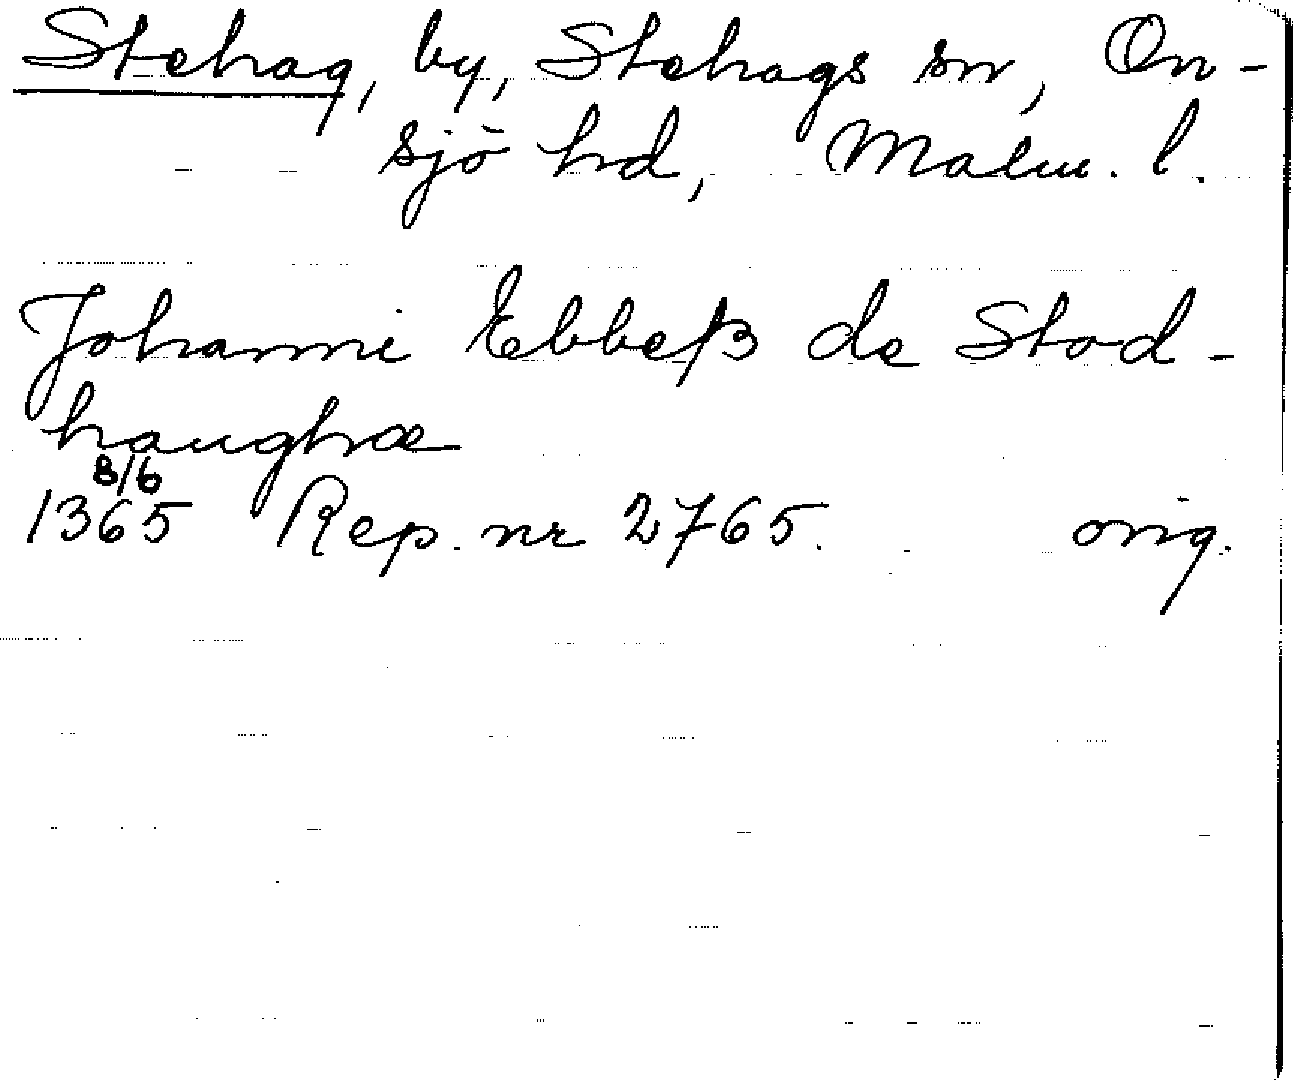 Stehag, by, Stehags sn, On-
sjö hd, Malm. l.
Johanni Ebbeß de Stod-
haughæ
8/6
1365 Rep. nr 2765. orig.